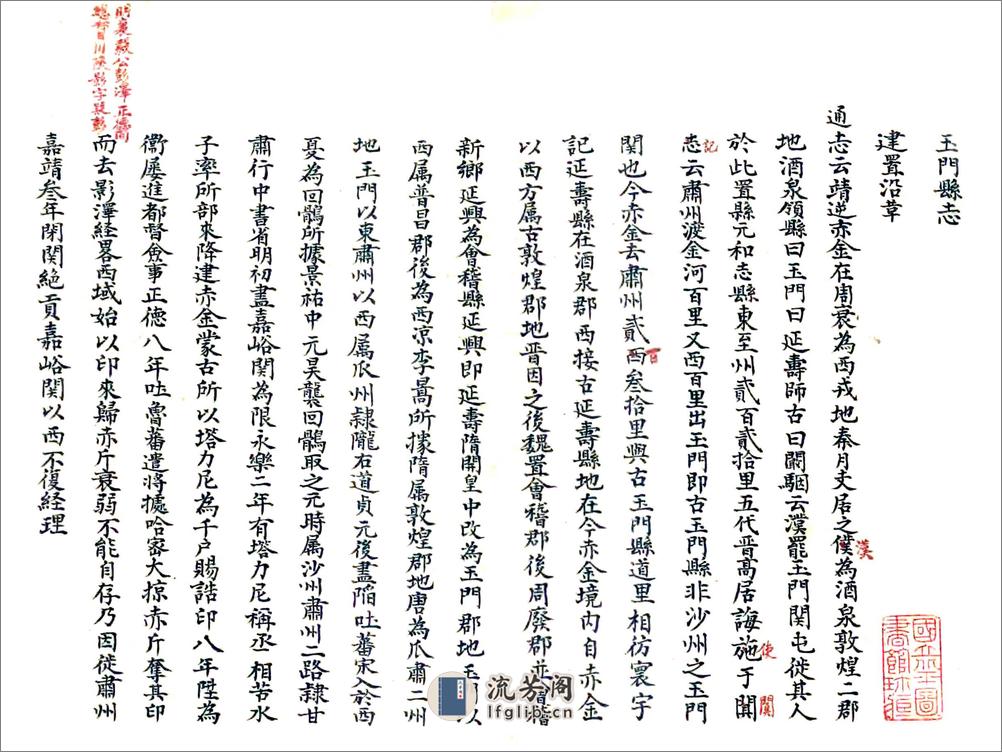 玉門縣志
建置沿革
通志云靖逆赤金在周衰為西戎地秦月支居之僕為酒泉敦煌二郡
漢
地酒泉領縣曰玉門曰延壽師古曰闞駰云漢罷玉門關屯徙其人
於此置縣元和志縣東至州貳百貳拾里五代晉高居誨施于聞
使
闐
志云肅州渡金河百里又西百里出玉門即古玉門縣非沙州之玉門
記
關也今赤金去肅州貳西叁拾里與古玉門縣道里相彷寰宇
百
記延壽縣在酒泉郡西接古延壽縣地在今赤金境內自赤金
以西方属古敦煌郡地晉因之後魏置會稽郡後周廢郡並會稽
新鄉延興為會稽縣延興即延壽隋開皇中改為玉門郡地玉門以
西属晉昌郡後為西凉李暠所據隋属敦煌郡地唐為瓜肅二州
地玉門以東肅州以西属瓜州隷隴右道貞元後盡陷吐蕃宋入於西
夏為回鶻所據景祐中元昊襲回鶻取之元時属沙州肅州二路隷甘
肅行中書省明初畫嘉峪關為限永樂二年有塔力尼稱丞相苦水
子率所部來降建赤金蒙古所以塔力尼為千户賜誥印八年陞為
衛屡進都督僉事正德八年吐魯蕃遣将據哈密大掠赤斤奪其印
而去影澤経畧西域始以印來歸赤斤衰弱不能自存乃因徙肅州
明襄毅公彭澤正德間
總督川陝影字疑彭
嘉靖叁年閉關絶貢嘉峪關以西不復経理
國立北平圖
書館珍藏
流芳阁
lfglib.cn